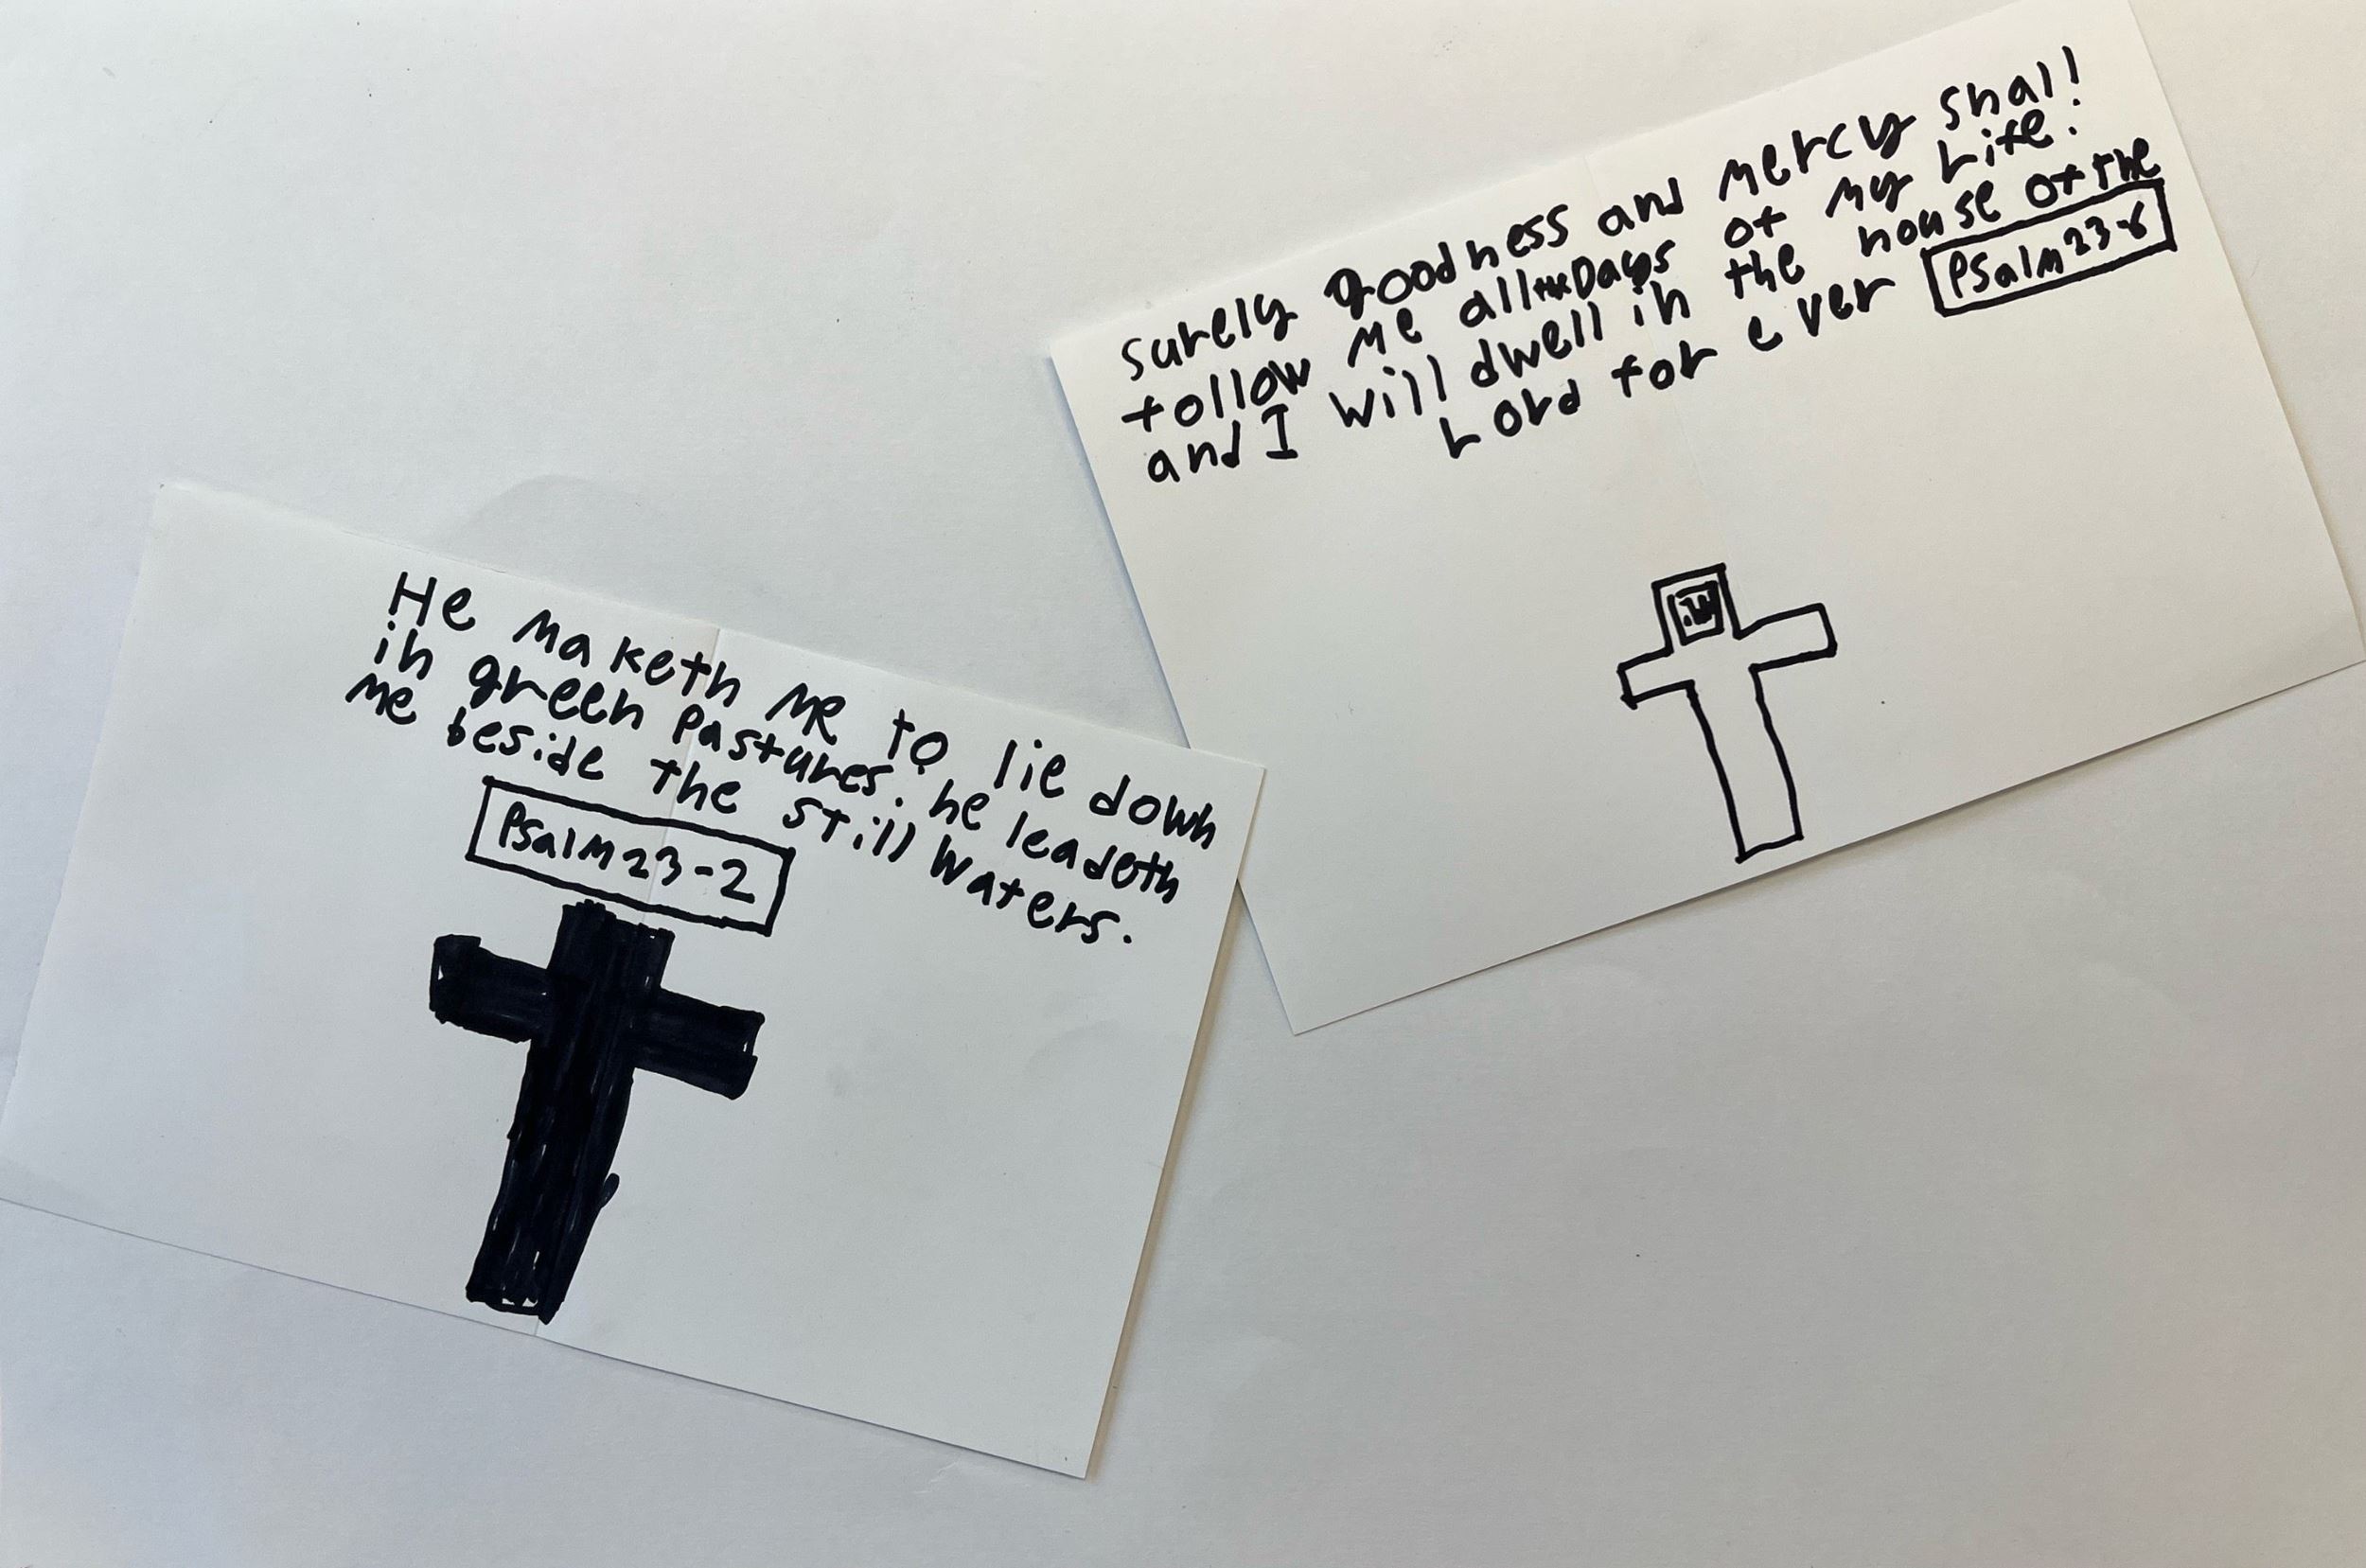 He maketh me to lie down
in green pastures: he leadeth
me beside the still waters.
Psalm 23-2
surely goodness and mercy shall
follow me all the Days of my Life:
and I will dwell in the house of the
Lord for ever
Psalm 23-6